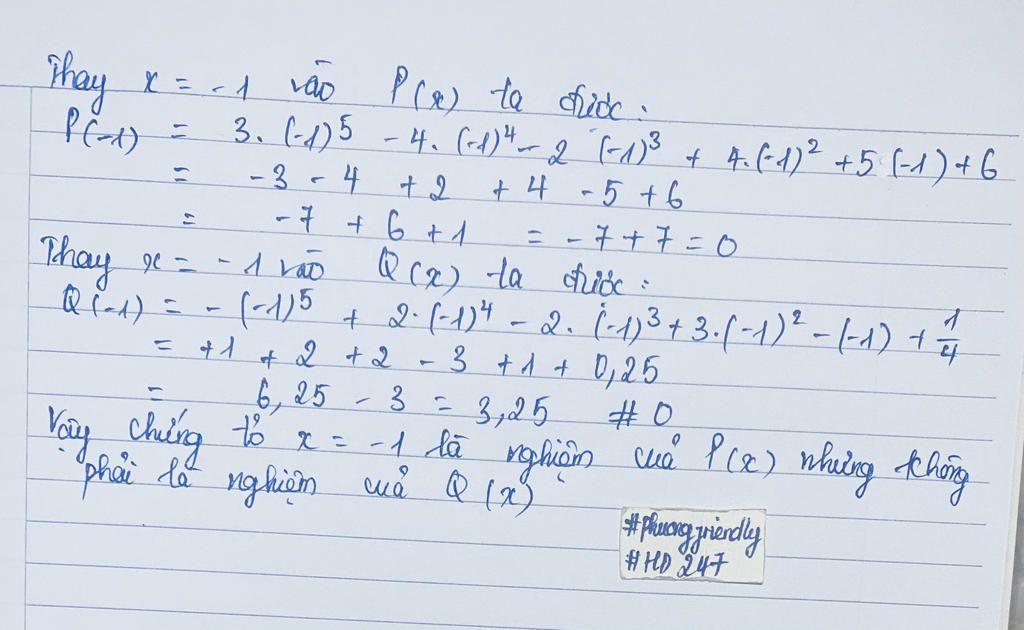 Thay x = -1 vào P(x) ta được:
P(-1) = 3. (-1)⁵ - 4. (-1)⁴ - 2 (-1)³ + 4.(-1)² + 5 (-1) + 6
= -3 - 4 + 2 + 4 - 5 + 6
= -7 + 6 + 1 = -7 + 7 = 0
Thay x = -1 vào Q(x) ta được:
Q(-1) = - (-1)⁵ + 2. (-1)⁴ - 2. (-1)³ + 3.(-1)² - (-1) + 1/4
= +1 + 2 + 2 - 3 + 1 + 0,25
= 6,25 - 3 = 3,25 # 0
Vậy chứng tỏ x = -1 là nghiệm của P(x) nhưng không
phải là nghiệm của Q(x)
#phuongfriendly
#HD 247